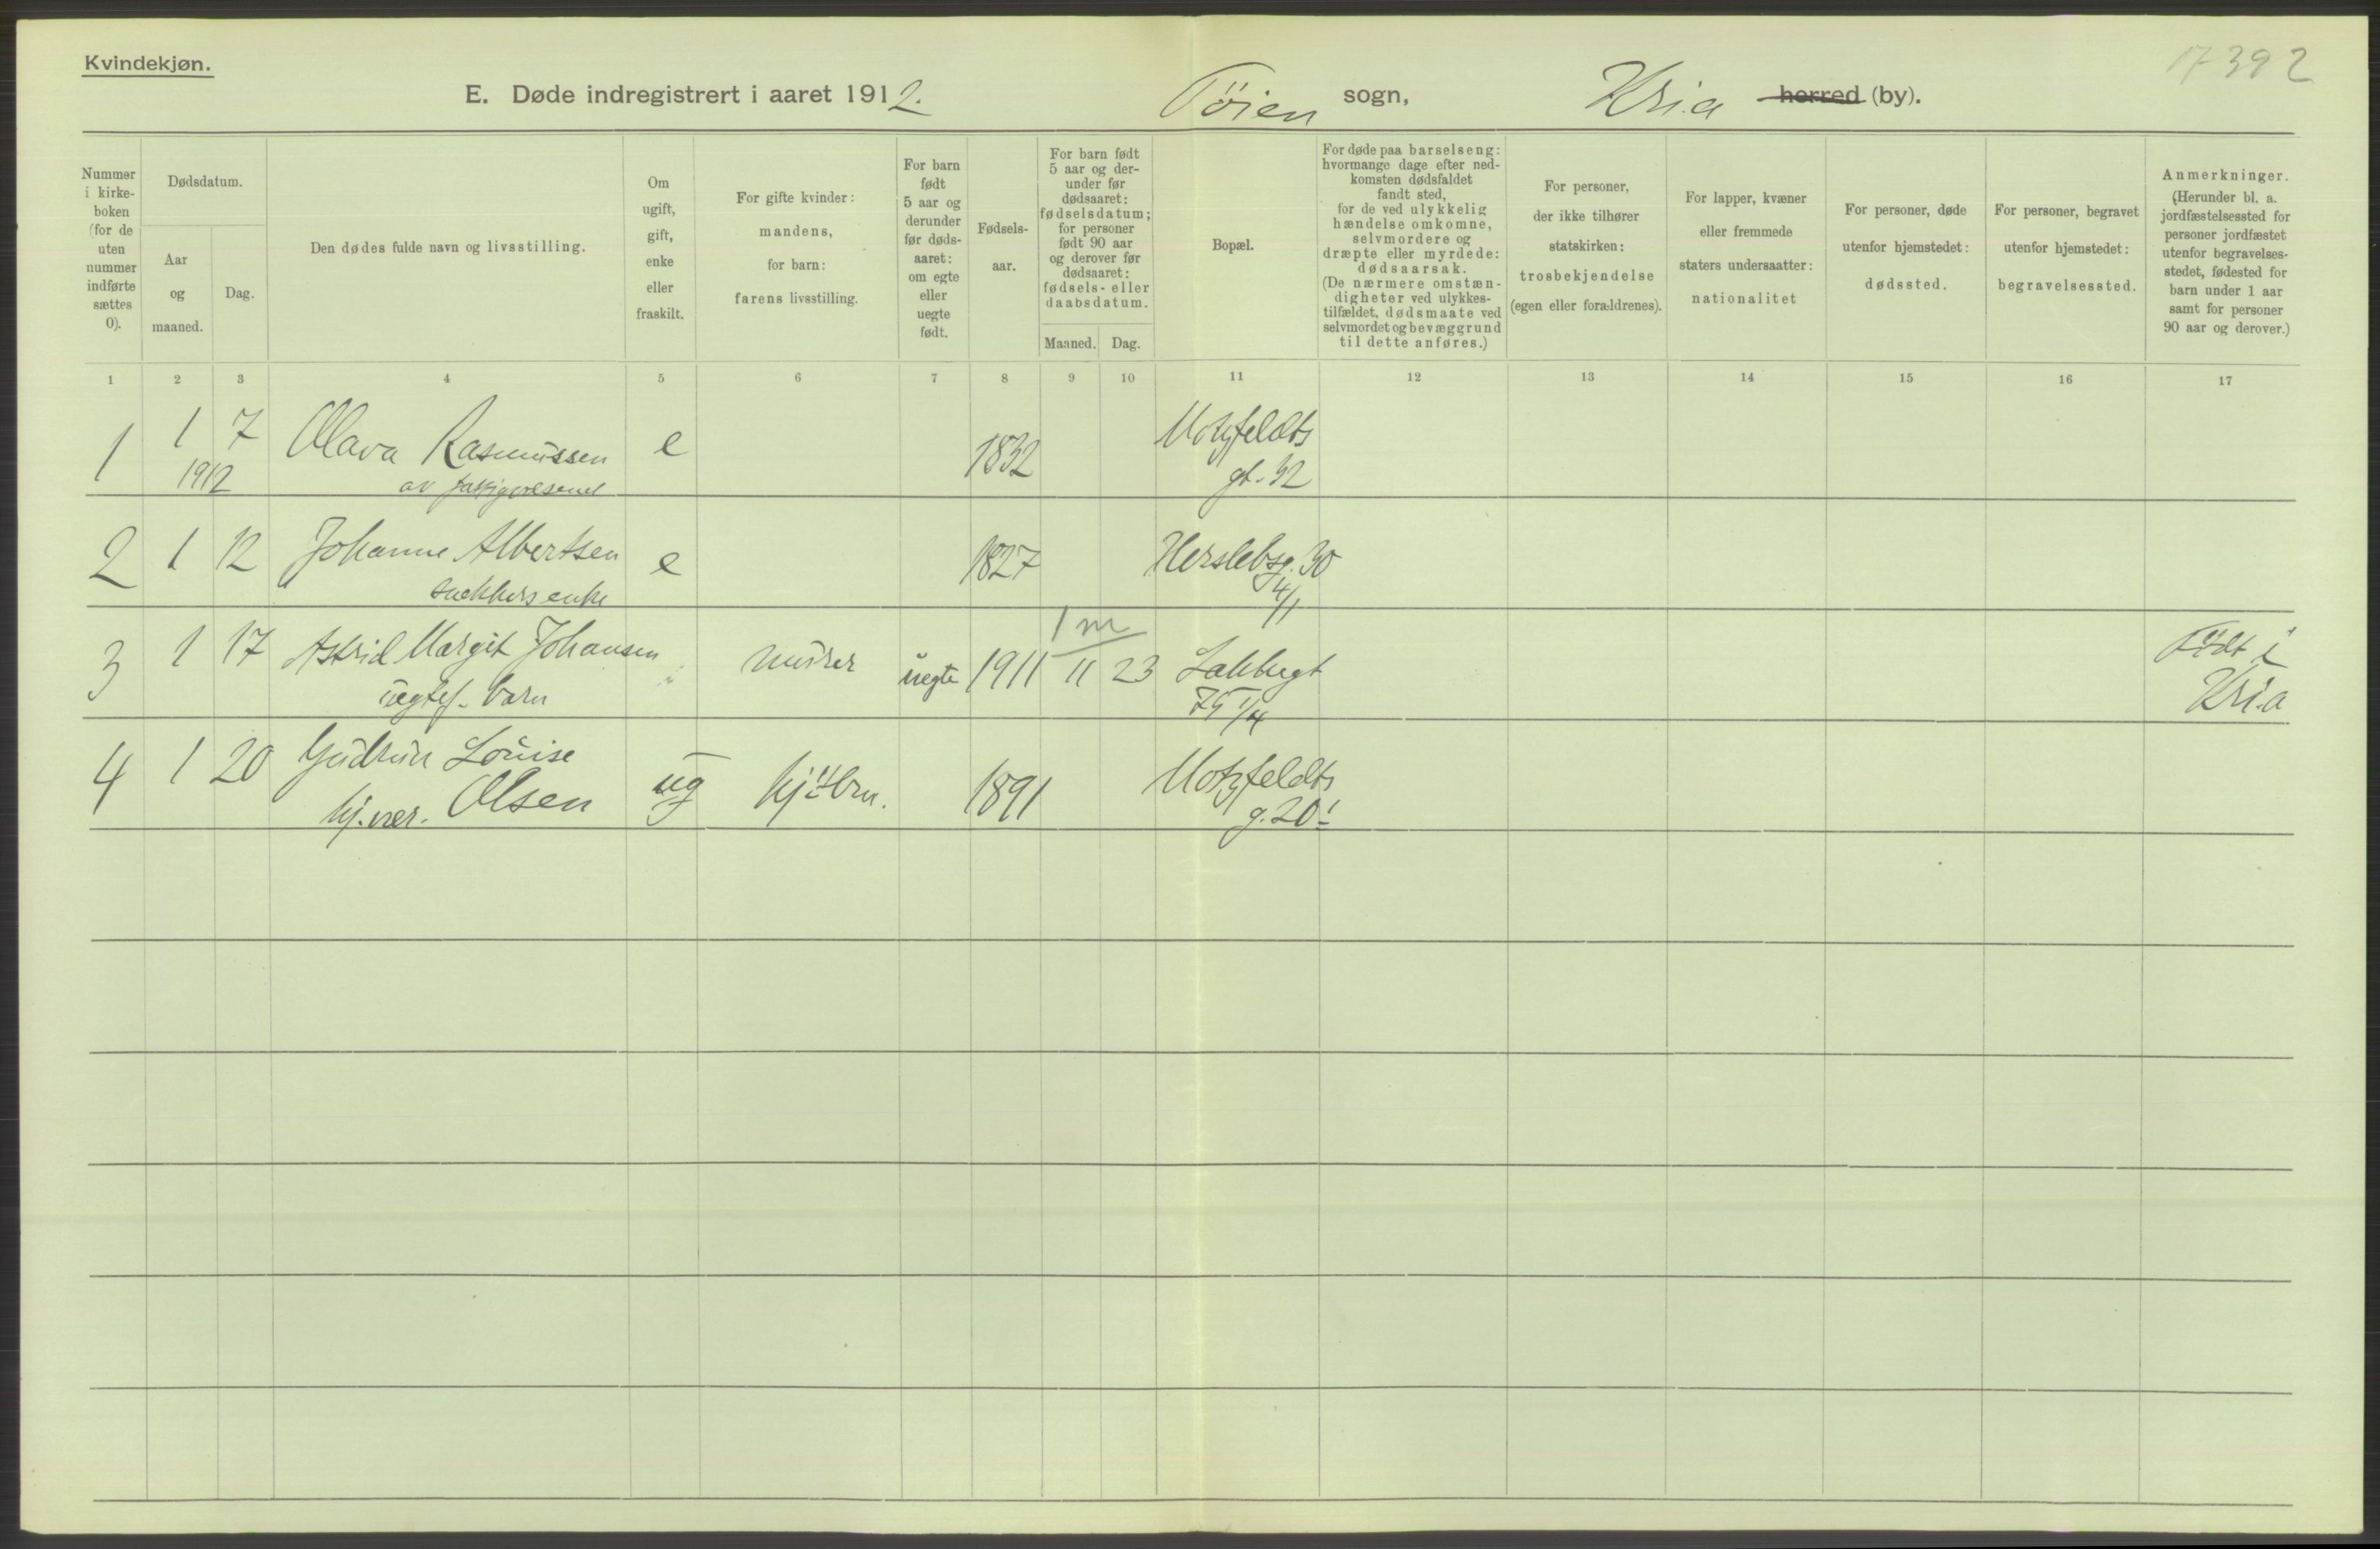 Kvindekjøn.
17392
E. Døde indregistrert i aaret 1912. Töien sogn, Kria herred (by).
Nummer i kirke-boken (for de uten nummer indførte sættes 0).
Dødsdatum.
Aar og maaned.
Dag.
Den dødes fulde navn og livsstilling.
Om ugift, gift, enke eller fraskilt.
For gifte kvinder: mandens, for barn: farens livsstilling.
For barn født 5 aar og derunder før døds-aaret: om egte eller uegte født.
Fødsels-aar.
For barn født 5 aar og der-under før dødsaaret: fødselsdatum; for personer født 90 aar og derover før dødsaaret: fødsels- eller daabsdatum.
Maaned.
Dag.
Bopæl.
For døde paa barselseng: hvormange dage efter ned-komsten dødsfaldet fandt sted, for de ved ulykkelig hændelse omkomne, selvmordere og dræpte eller myrdede: dødsaarsak. (De nærmere omstæn-digheter ved ulykkes-tilfældet, dødsmaate ved selvmordet og bevæggrund til dette anføres.)
For personer, der ikke tilhører statskirken: trosbekjendelse (egen eller forældrenes).
For lapper, kvæner eller fremmede staters undersaatter: nationalitet
For personer, døde utenfor hjemstedet: dødssted.
For personer, begravet utenfor hjemstedet: begravelsessted.
Anmerkninger. (Herunder bl. a. jordfæstelsessted for personer jordfæstet utenfor begravelses-stedet, fødested for barn under 1 aar samt for personer 90 aar og derover.)
1 2 3 4 5 6 7 8 9 10 11 12 13 14 15 16 17
1 1 7 Olava Rasmussen e 1832 Motzfeldts
1912 av fattigvesenet gt. 32
2 1 12 Johanne Albertsen e 1827 Herslebsg. 30
snekkers enke 4/1
1 m
3 1 17 Astrid Margit Johansen murer uegte 1911 11 23 Lakkegt Födt i
uegtef. barn 75 1/4 Kria
4 1 20 Gudrun Louise ug kj 1891 Motzfeldts
Olsen g. 20